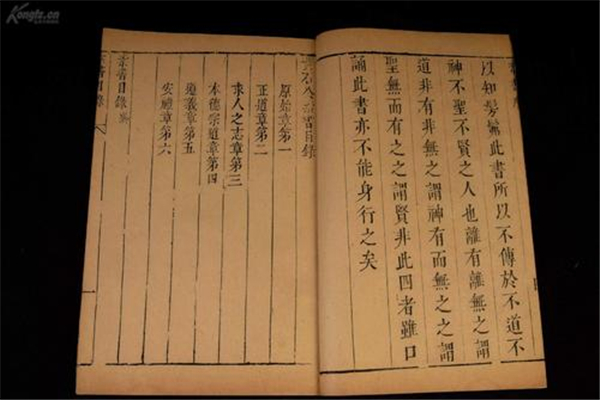 Kongfz.cn
以知髣髴此書所以不傳於不道不
神不聖不賢之人也離有離無之謂
道非有非無之謂神有而無之之謂
聖無而有之之謂賢非此四者雖口
誦此書亦不能身行之矣
黃石公素書目錄
原始章第一
正道章第二
求人之志章第三
本德宗道章第四
遵義章第五
安禮章第六
素書目錄終
素書目錄